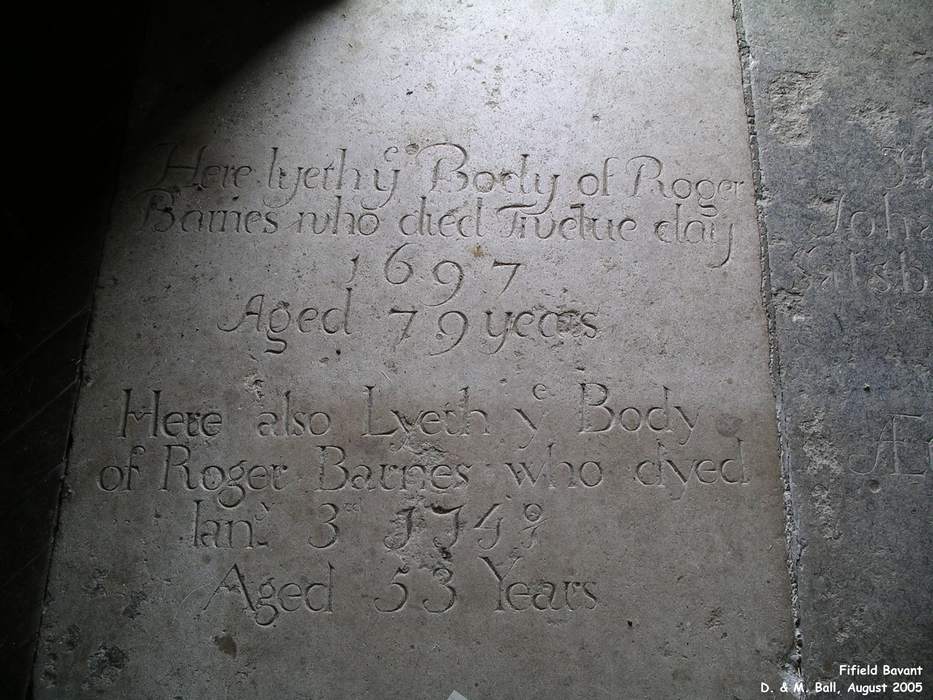 Here lyeth yᵉ Body of Roger
Barnes who died Twelue day
1697
Aged 79 years
Here also Lyeth yᵉ Body
of Roger Barnes who dyed
Ianʸ 3ʳᵈ 1749
Aged 53 Years
Fifield Bavant
D. & M. Ball, August 2005